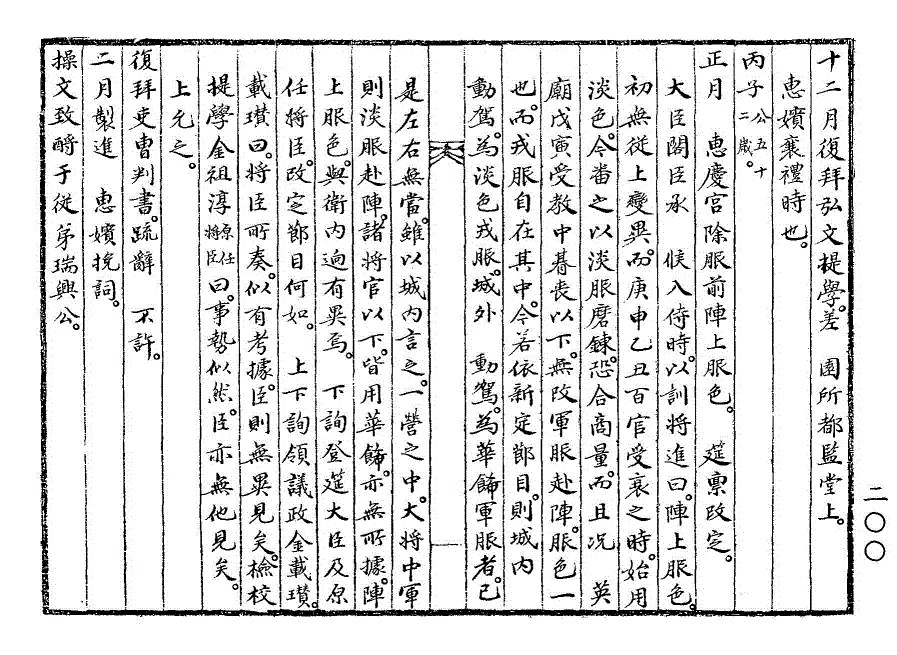 十二月復拜弘文提學。差　園所都監堂上。
惠嬪襄禮時也。
丙子公五十二歲。
正月　惠慶宮除服前陣上服色。　筵稟改定。
大臣閣臣承　候入侍時。以訓將進曰。陣上服色。
初無從上變異。而庚申乙丑百官受衰之時。始用
淡色。今番之以淡服磨鍊。恐合商量。而且况　英
廟戊寅受敎中朞喪以下。無改軍服赴陣。服色一
也。而戎服自在其中。今若依新定節目。則城內
動駕。爲淡色戎服。城外　動駕。爲華飾軍服者。已
是左右無當。雖以城內言之。一營之中。大將中軍
則淡服赴陣。諸將官以下。皆用華飾。亦無所據。陣
上服色。與衛內逈有異焉。　下詢登筵大臣及原
任將臣。改定節目何如。　上下詢領議政金載瓚。
載瓚曰。將臣所奏。似有考據。臣則無異見矣。檢校
提學金祖淳原任將臣曰。事勢似然。臣亦無他見矣。
上允之。
復拜吏曹判書。疏辭　不許。
二月製進　惠嬪挽詞。
操文致酹于從弟瑞興公。
二〇〇